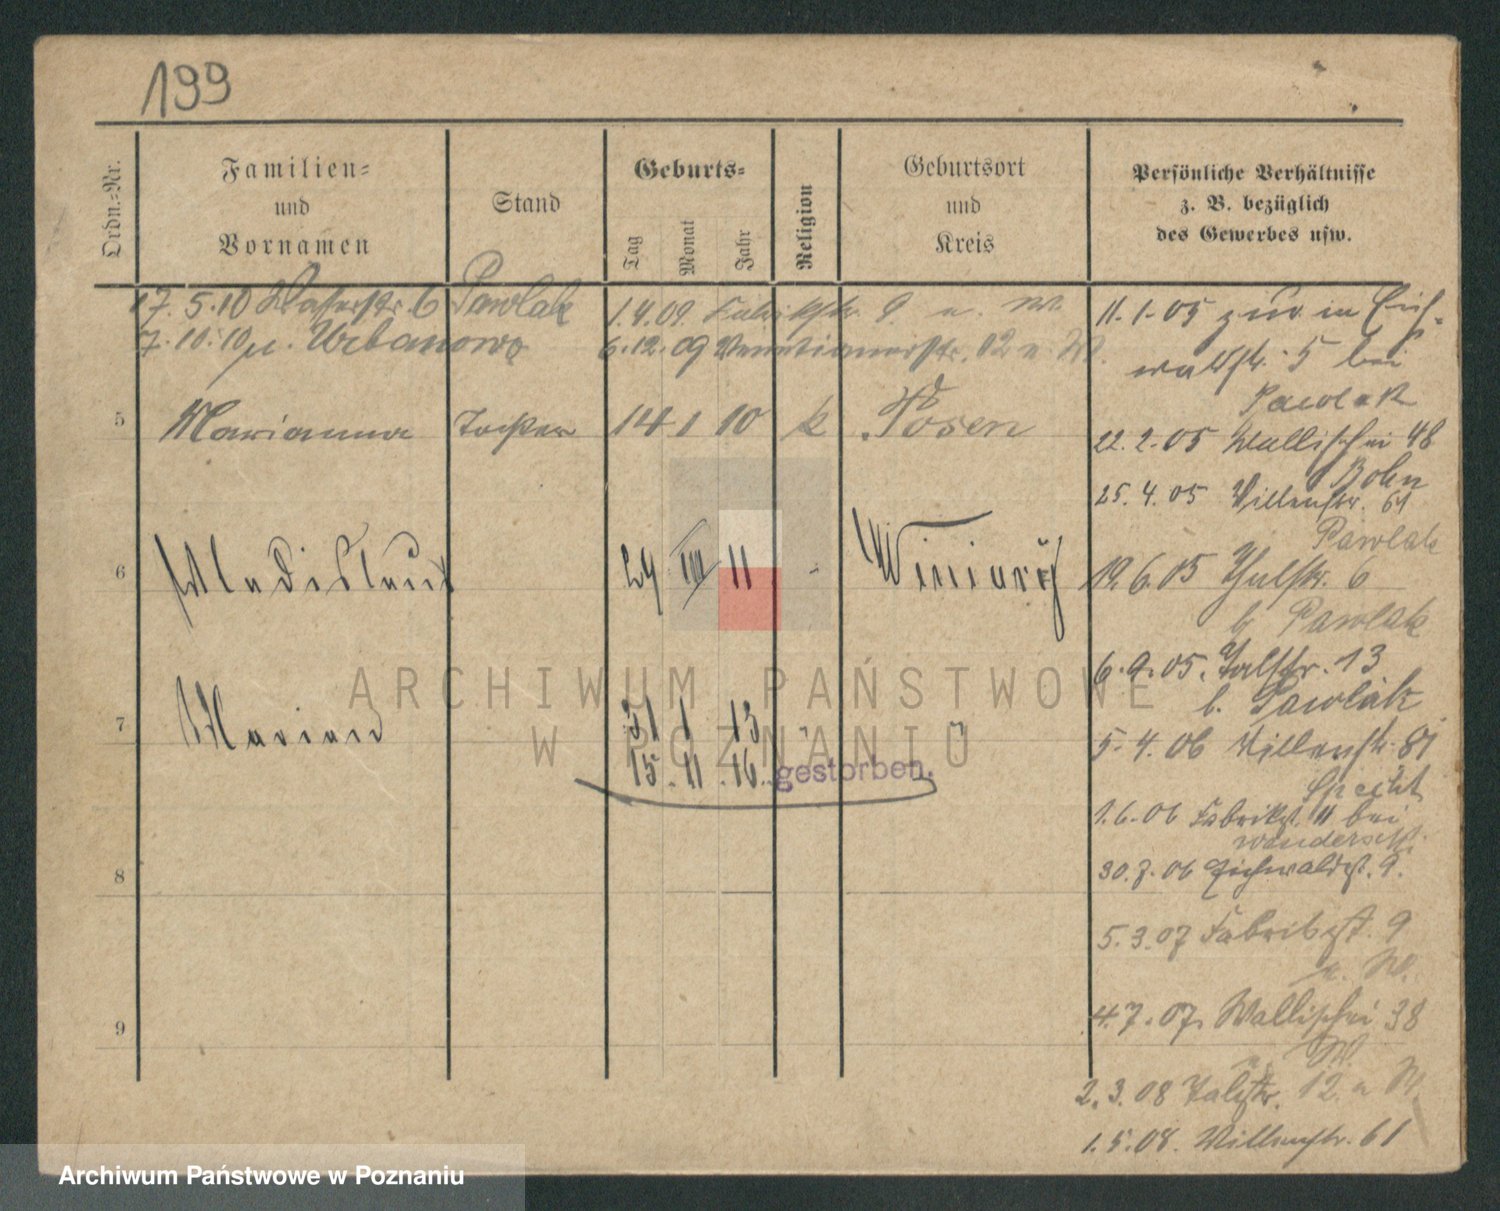 199
Ordn.-Nr.
Familien-
und
Vornamen
Stand
Geburts-
Tag
Monat
Jahr
Religion
Geburtsort
und
Kreis
Persönliche Verhältnisse
z. B. bezüglich
des Gewerbes usw.
17. 5. 10 Wasserstr. 6 Pawlak
7. 10. 10 n. Urbanowo
1. 4. 09. Fabrikstr. 9. n. W.
6. 12. 09 Venetianerstr. 12 n. W.
5 Marianna Tochter 14 1 10 k Posen
6 Wladislaus 29 VIII 11 Winiary
7 Marian 31 1 13
15. 11. 16. gestorben.
8
9
11. 1. 05 zur. in Eich-
waldstr. 5 bei
Pawlak
22. 2. 05 Wallischei 48
Bohn
25. 4. 05 Villenstr. 61
Pawlak
19. 6. 05 Thalstr. 6
b. Pawlak
6. 9. 05. Talstr. 13
b. Pawlak
5. 4. 06 Villenstr. 81
Specht
1. 6. 06 Fabrikst. 11 bei
30. 8. 06 Eichwaldst. 9.
5. 3. 07 Fabrikst. 9
n. W.
4. 7. 07. Wallischei 38
n. W.
2. 3. 08 Talstr. 12. n W.
1. 5. 08. Villenstr. 61
ARCHIWUM PAŃSTWOWE
W POZNANIU
Archiwum Państwowe w Poznaniu